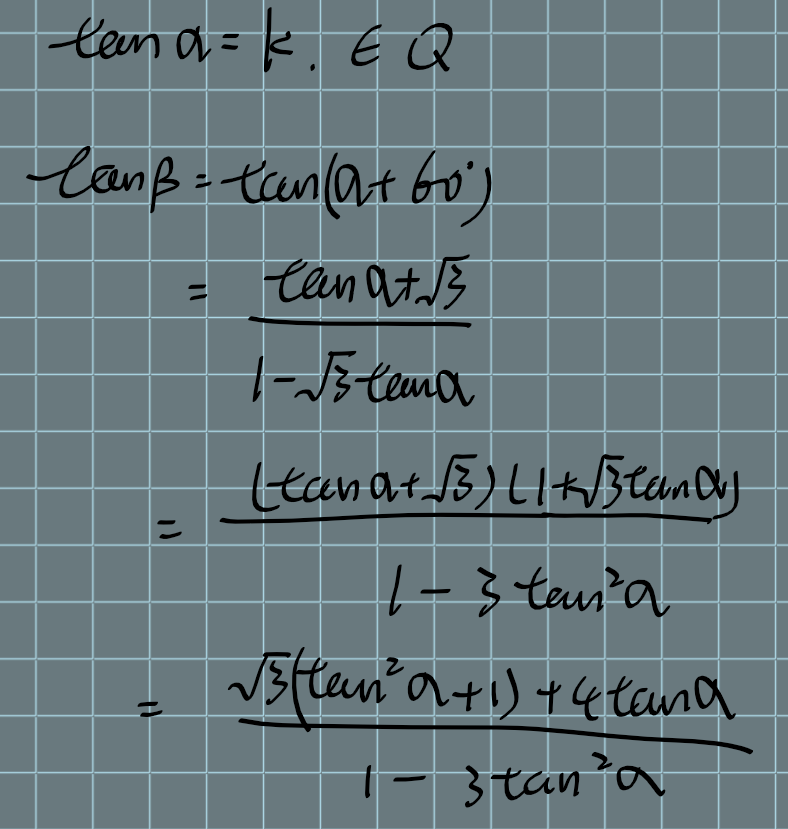 tan α = k. ∈ Q
tan β = tan(α + 60°)
= (tan α + √3) / (1 - √3 tan α)
= (tan α + √3)(1 + √3 tan α) / (1 - 3 tan²α)
= (√3(tan²α + 1) + 4 tan α) / (1 - 3 tan²α)